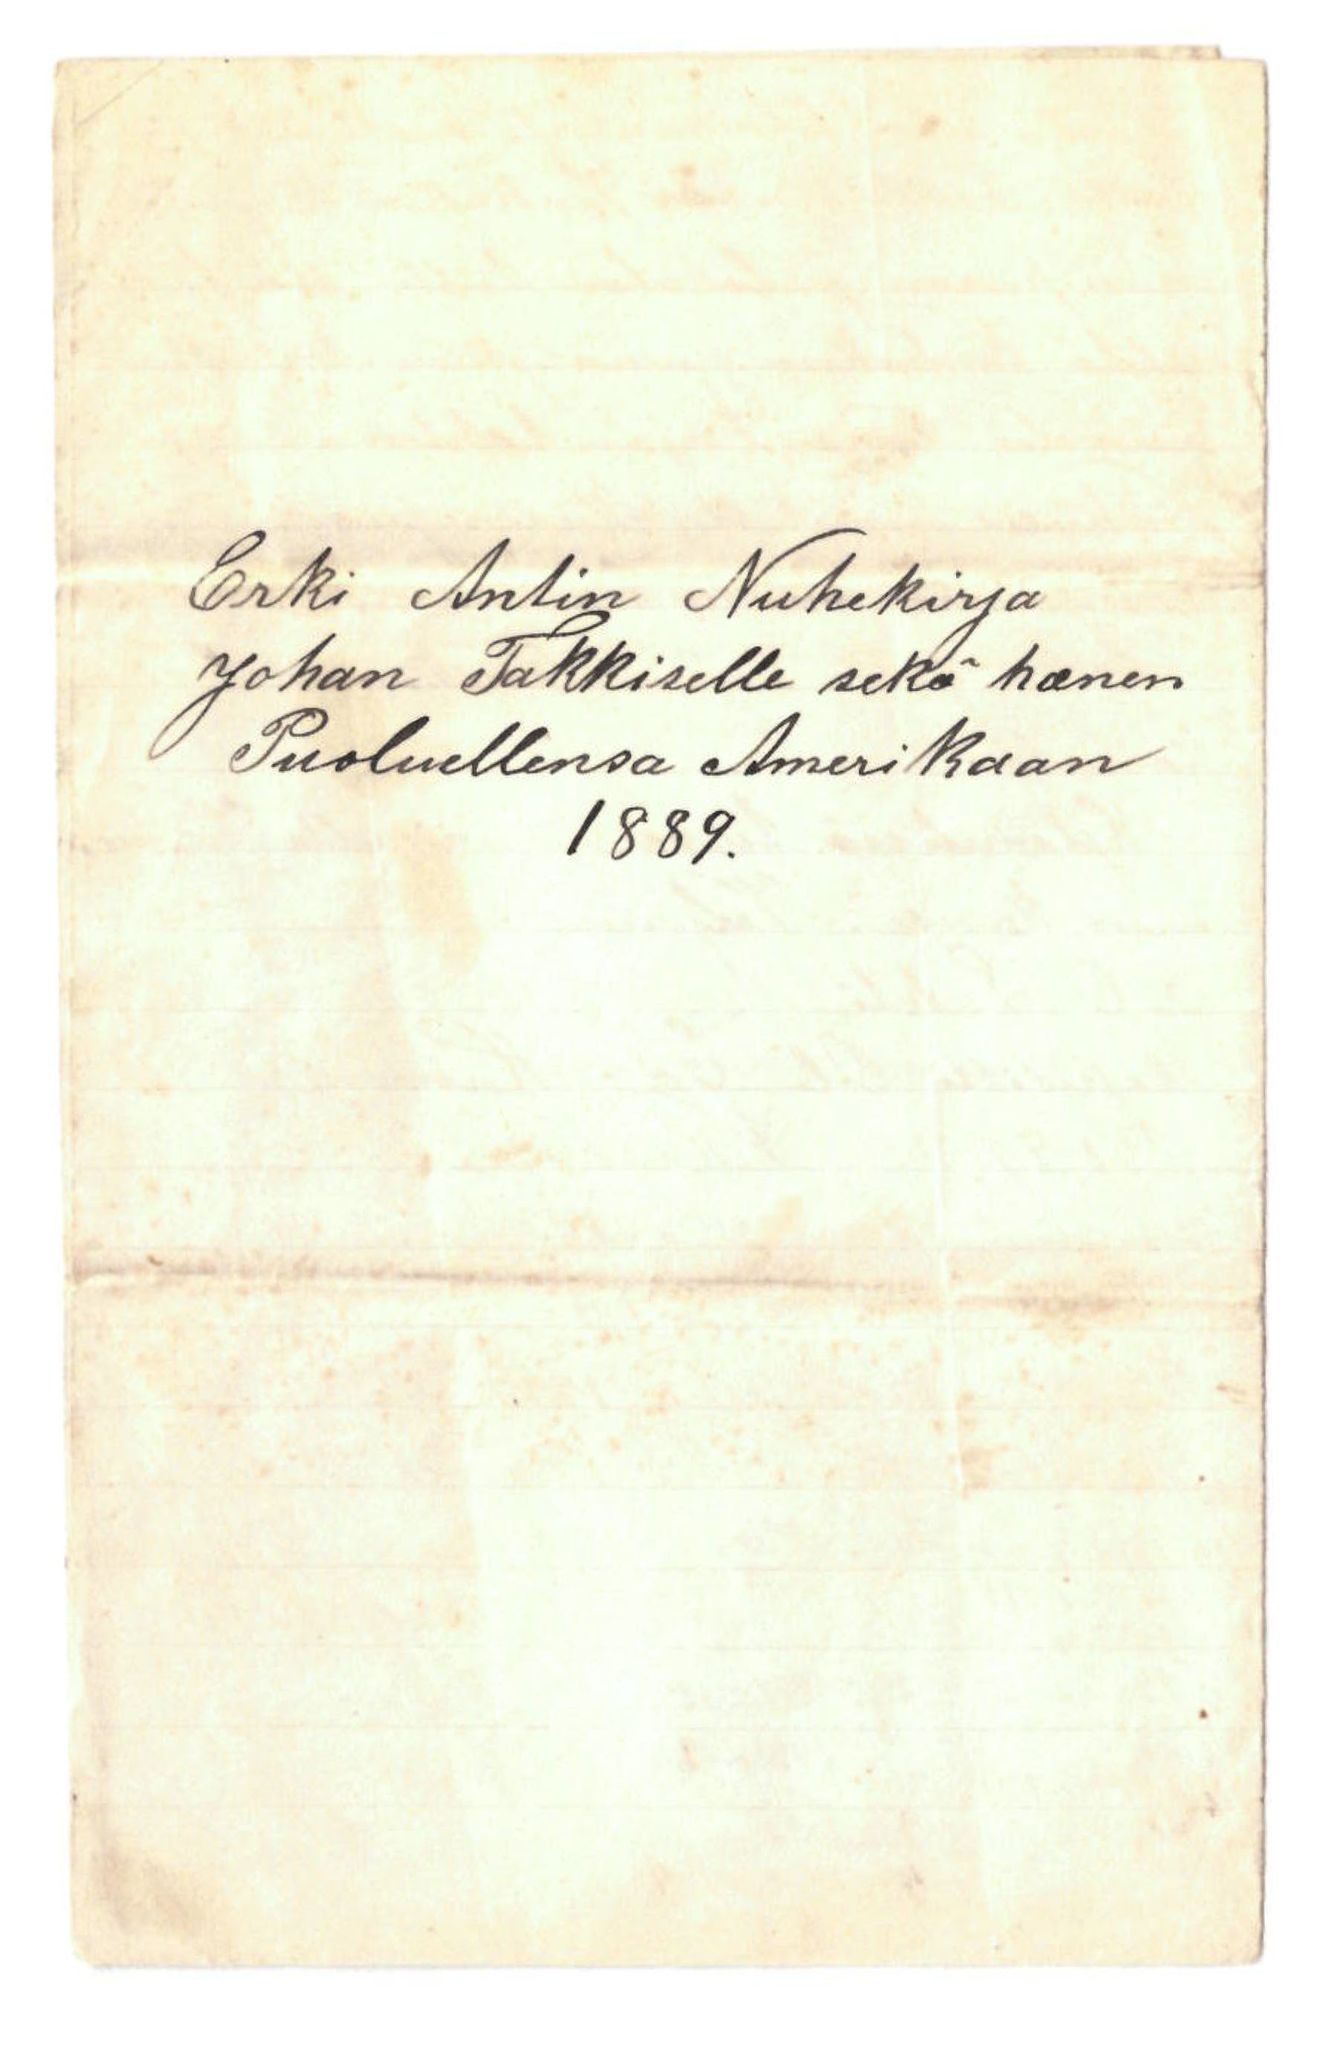 Erki Antin Nuhekirja
Johan Takkiselle sekä hænen
Puoluellensa Amerikaan
1889.